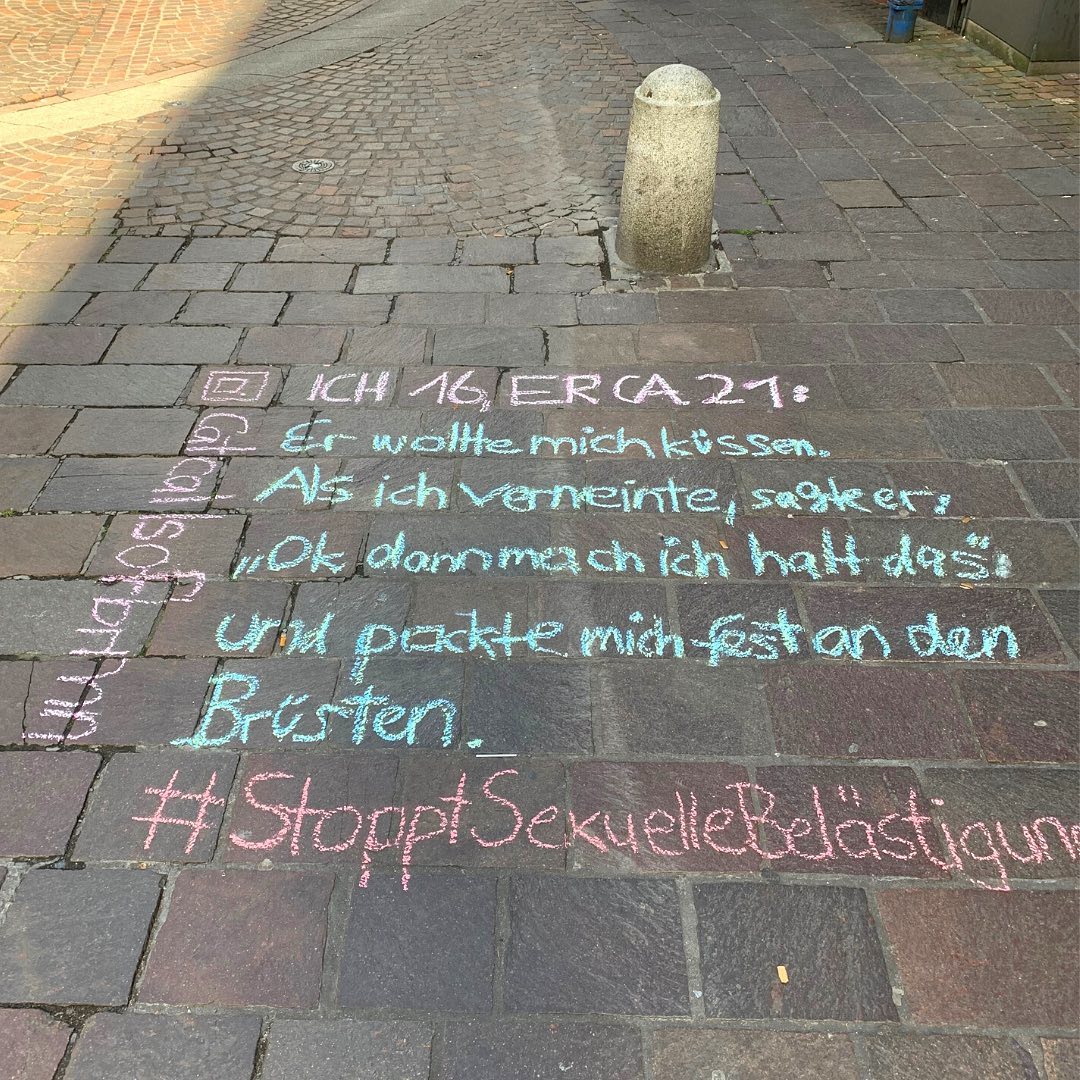 ICH 16, ER CA 21:
Er wollte mich küssen.
Als ich verneinte, sagte er,
„Ok dann mach ich halt das“
und packte mich fest an den
Brüsten.
#StopptSexuelleBelästigung